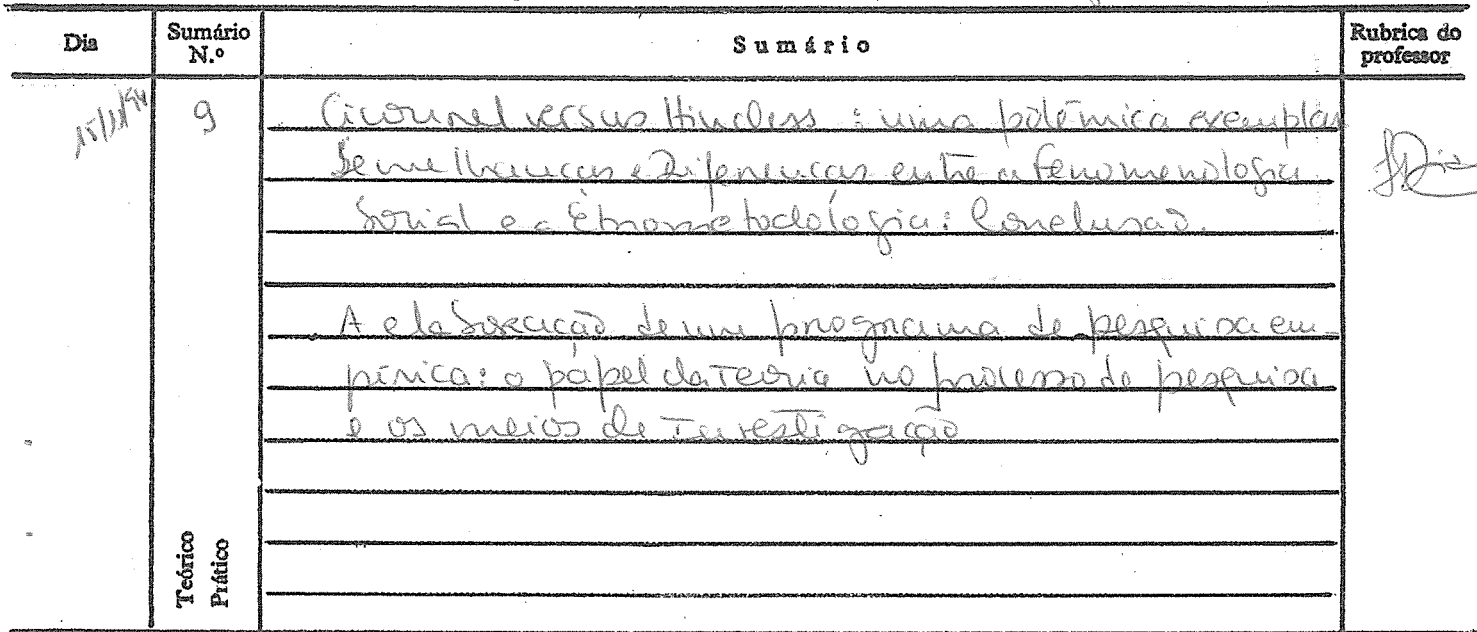 Dia
Sumário N.º
Sumário
Rubrica do professor
9
Cicourel versus Hindess : uma polémica exemplar
Semelhanças e Diferenças entre a fenomenologia
Social e a Etnometodologia: Conclusão.
A elaboração de um programa de pesquisa em-
pírica: o papel da Teoria no processo de pesquisa
e os meios de Investigação
Teórico
Prático